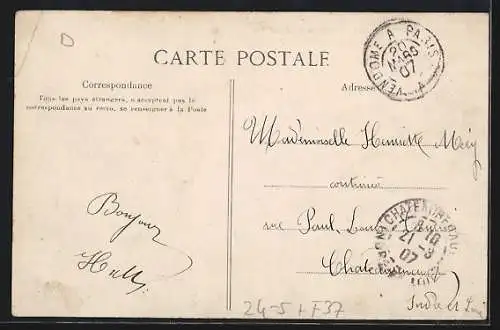 D
CARTE POSTALE
VENDOME A PARIS
20
MARS
07
Correspondance
Tous les pays étrangers n'acceptent pas la
correspondance au recto, se renseigner à la Poste
Adresse
Mademoiselle Henriette
couturière
rue Paul Louis Courier
21
07
Bonjour
Indre et Loire
24-5 + F37